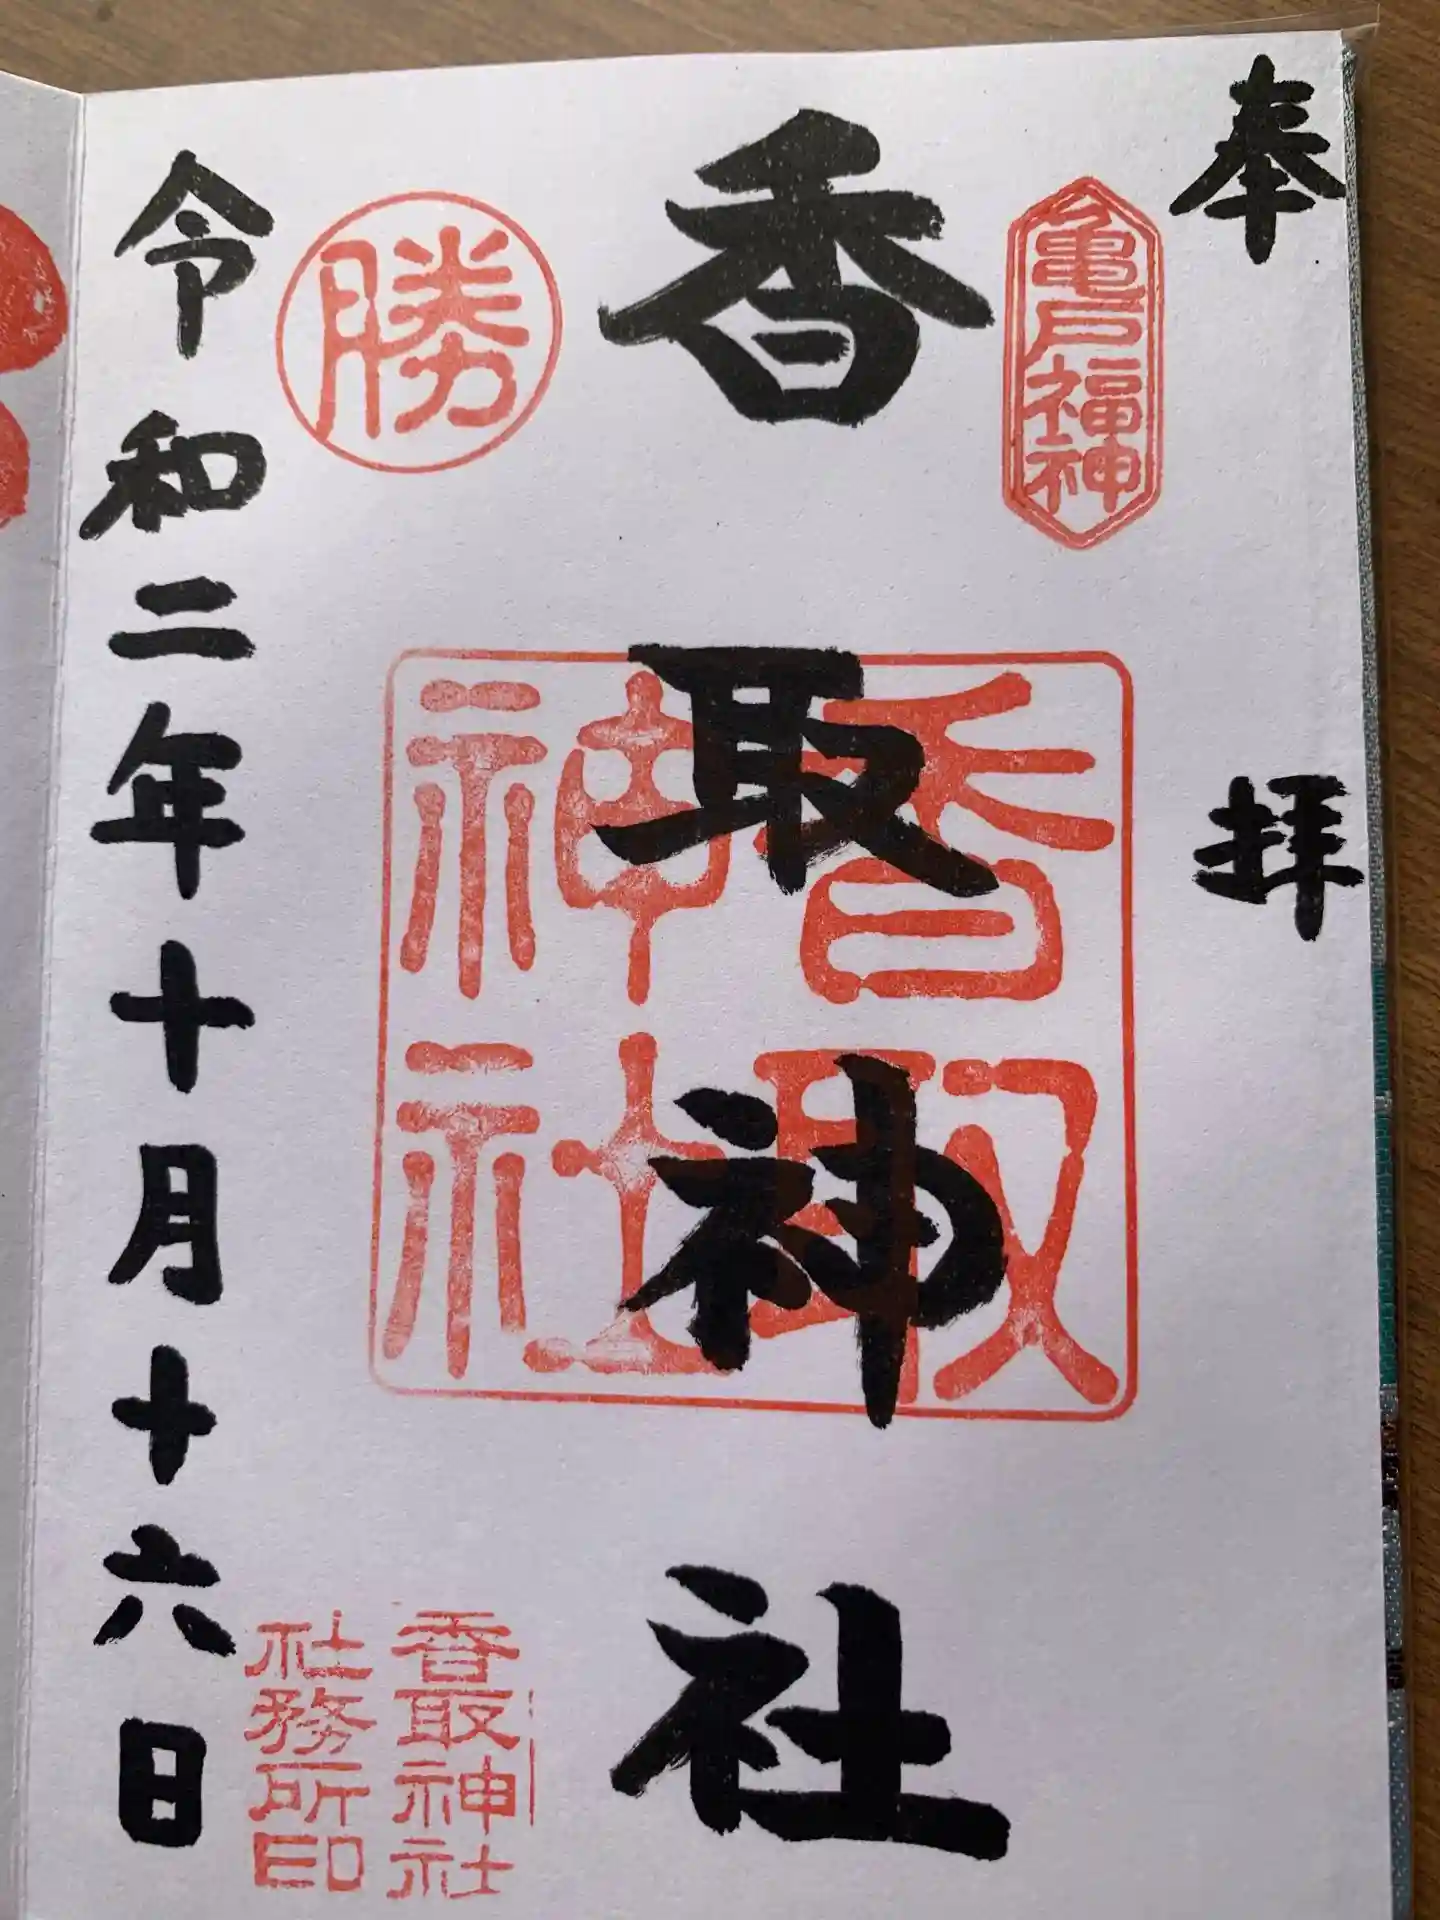 奉拝
亀戸福神
香取神社
香取神社
勝
香取神社
社務所印
令和二年十月十六日